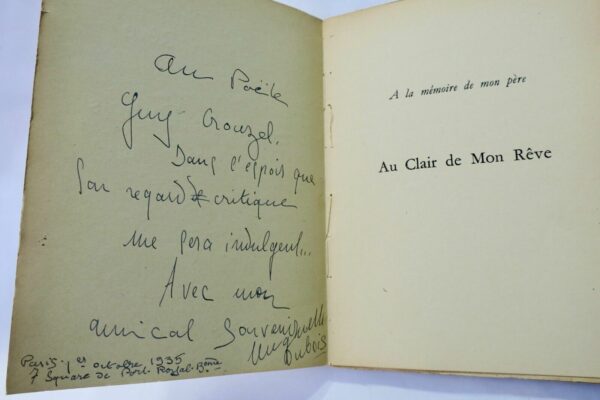 Au Poëte
Guy Crouzel,
Dans l'espoir que
son regard de critique
me sera indulgent...
Avec mon
amical Souvenir
Huguette
Dubois
Paris. 1er octobre 1935
7 Square de Port-Royal. 13ème
A la mémoire de mon père
Au Clair de Mon Rêve